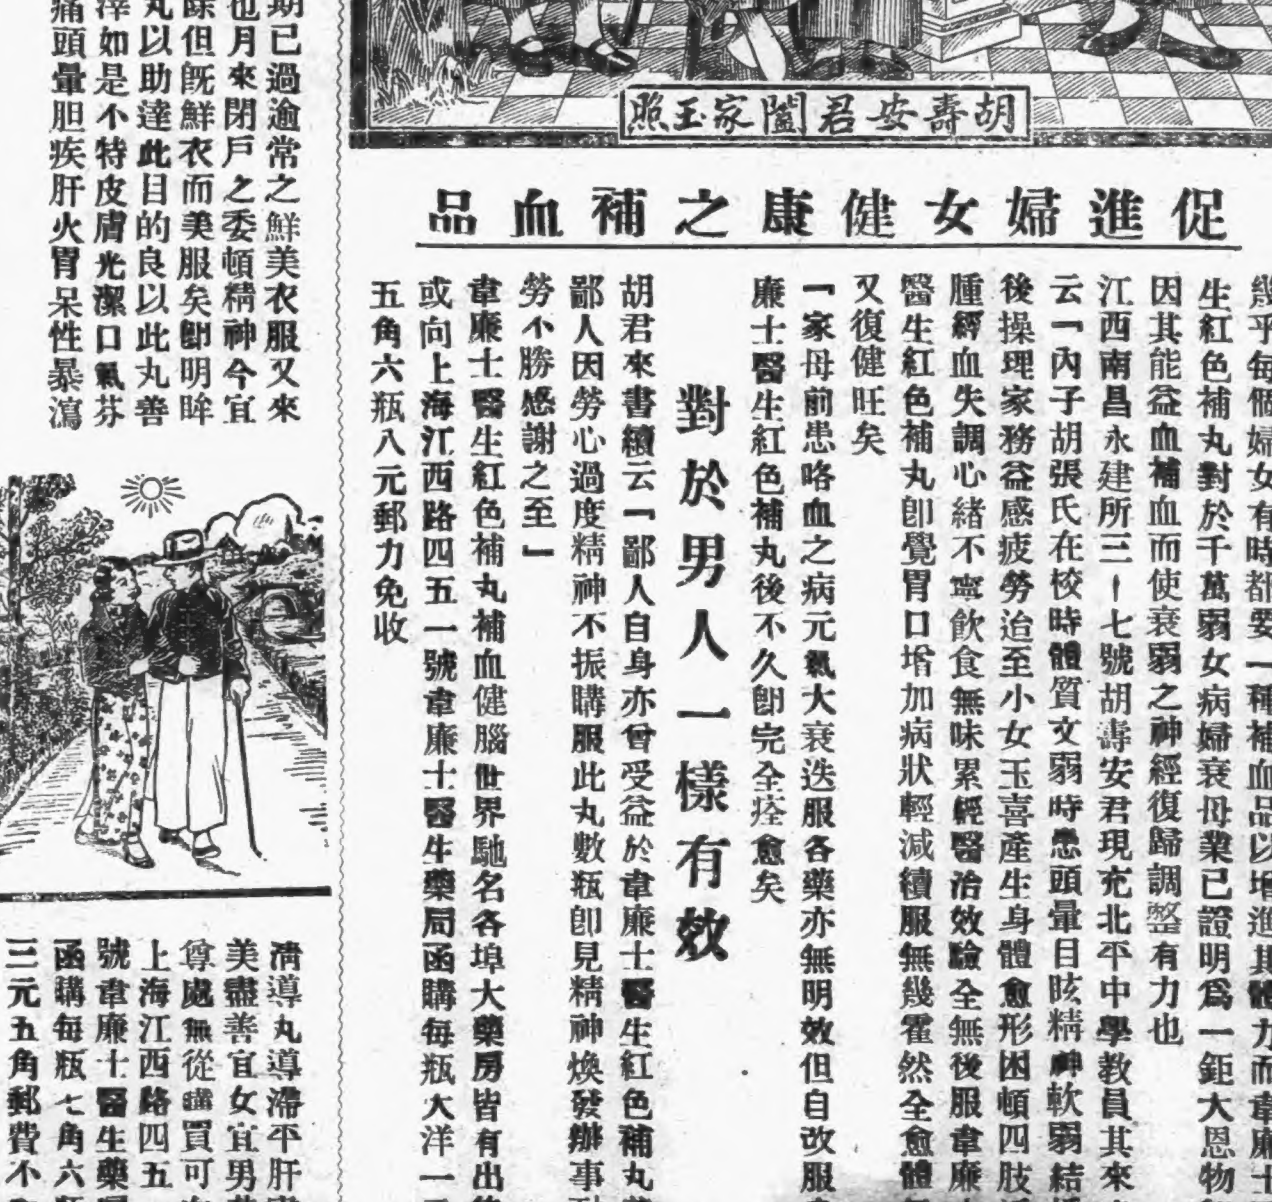 胡壽安君闔家玉照
促進婦女健康之補血品
幾乎每個婦女有時都要一種補血品以增進其體力而韋廉士
生紅色補丸對於千萬弱女病婦衰母業已證明爲一鉅大恩物
因其能益血補血而使衰弱之神經復歸調整有力也
江西南昌永建所三一七號胡壽安君現充北平中學教員其來
云「內子胡張氏在校時體質文弱時患頭暈目眩精神軟弱結
後操理家務益感疲勞迨至小女玉喜產生身體愈形困頓四肢
腫經血失調心緒不寧飲食無味累經醫治效驗全無後服韋廉
醫生紅色補丸卽覺胃口增加病狀輕減續服無幾霍然全愈體
又復健旺矣
「家母前患咯血之病元氣大衰迭服各藥亦無明效但自改服
廉士醫生紅色補丸後不久卽完全痊愈矣
對於男人一樣有效
胡君來書續云「鄙人自身亦曾受益於韋廉士醫生紅色補丸
鄙人因勞心過度精神不振購服此丸數瓶卽見精神煥發辦事
勞不勝感謝之至」
韋廉士醫生紅色補丸補血健腦世界馳名各埠大藥房皆有出
或向上海江西路四五一號韋廉士醫生藥局函購每瓶大洋一
五角六瓶八元郵力免收
期已過逾常之鮮美衣服又來
也月來閉戶之委頓精神今宜
除但旣鮮衣而美服矣卽明眸
丸以助達此目的良以此丸善
滓如是不特皮膚光潔口氣芬
痛頭暈胆疾肝火胃呆性暴瀉
淸導丸導滯平肝
美盡善宜女宜男
尊處無從購買可
上海江西路四五
號韋廉士醫生藥
函購每瓶七角六
三元五角郵費不